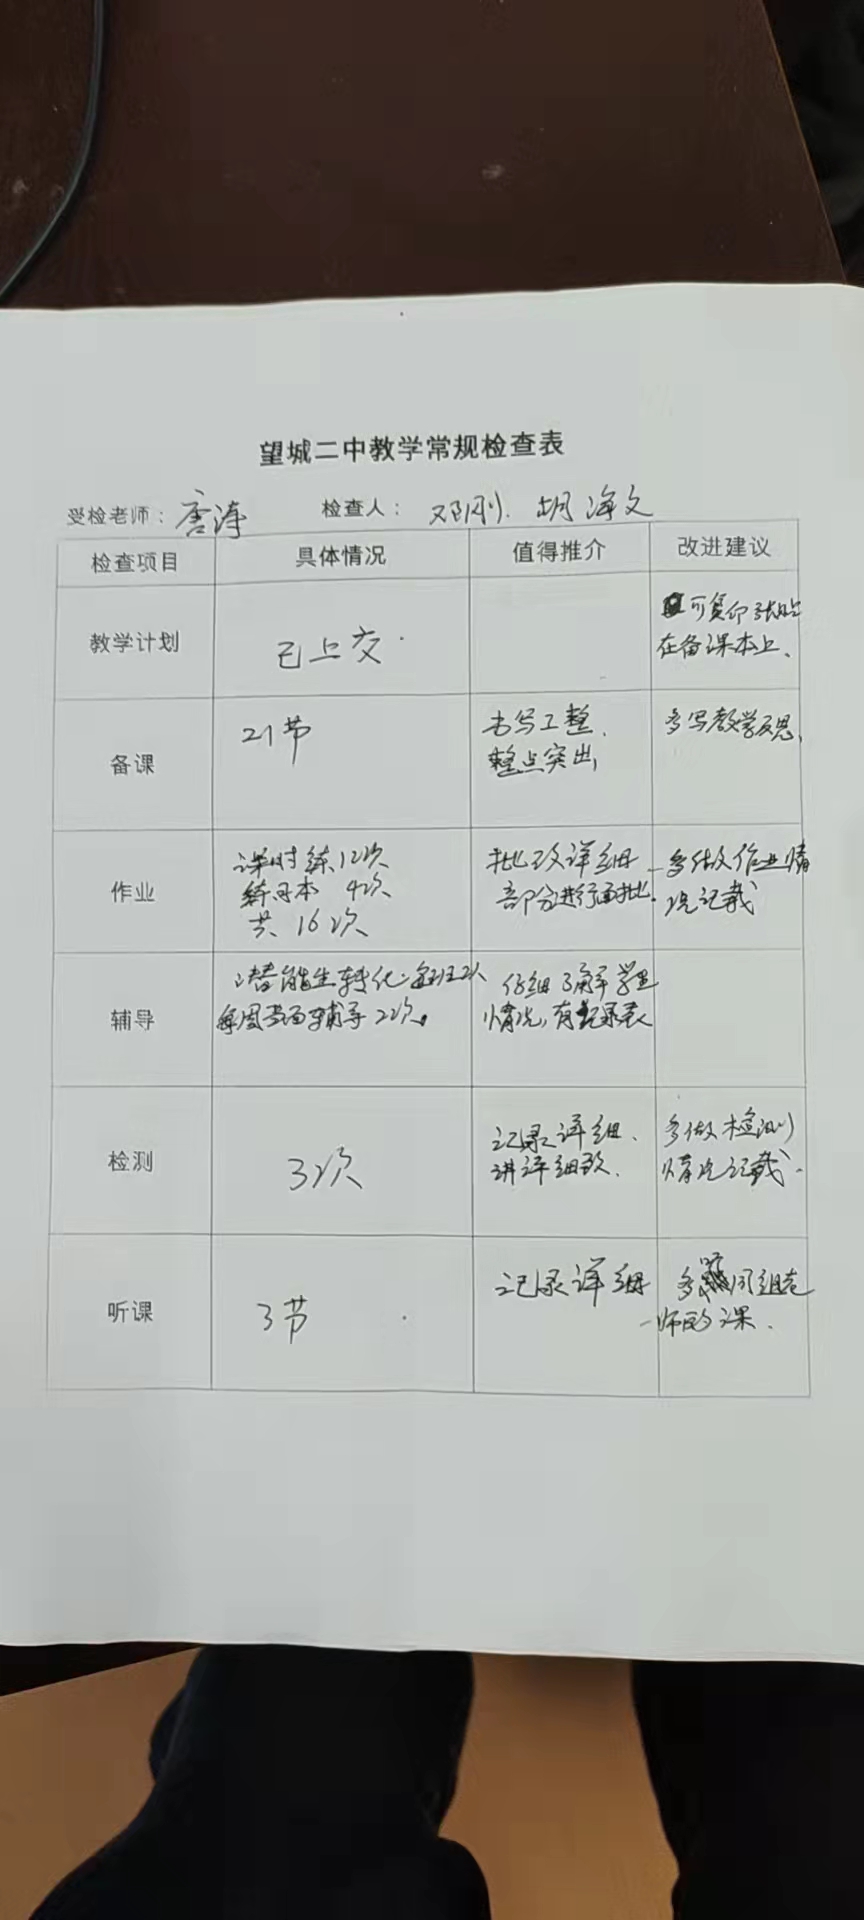 望城二中教学常规检查表
受检老师：唐涛 检查人：邓刚、胡海文
检查项目 具体情况 值得推介 改进建议
教学计划 已上交 可复印张贴
在备课本上、
备课 21节 书写工整、 多写教学反思、
整点突出、
作业 课时练12次 批改详细 多做作业情
练习本 4次 部分进行面批. 况记载
共 16次
辅导 潜能生转化: 每班2人 仔细了解学生
每周培辅导2次。 情况,有记录表
检测 3次 记录详细、 多做检测
讲评细致. 情况记载.
听课 3节 记录详细 多听同组老
师的课.